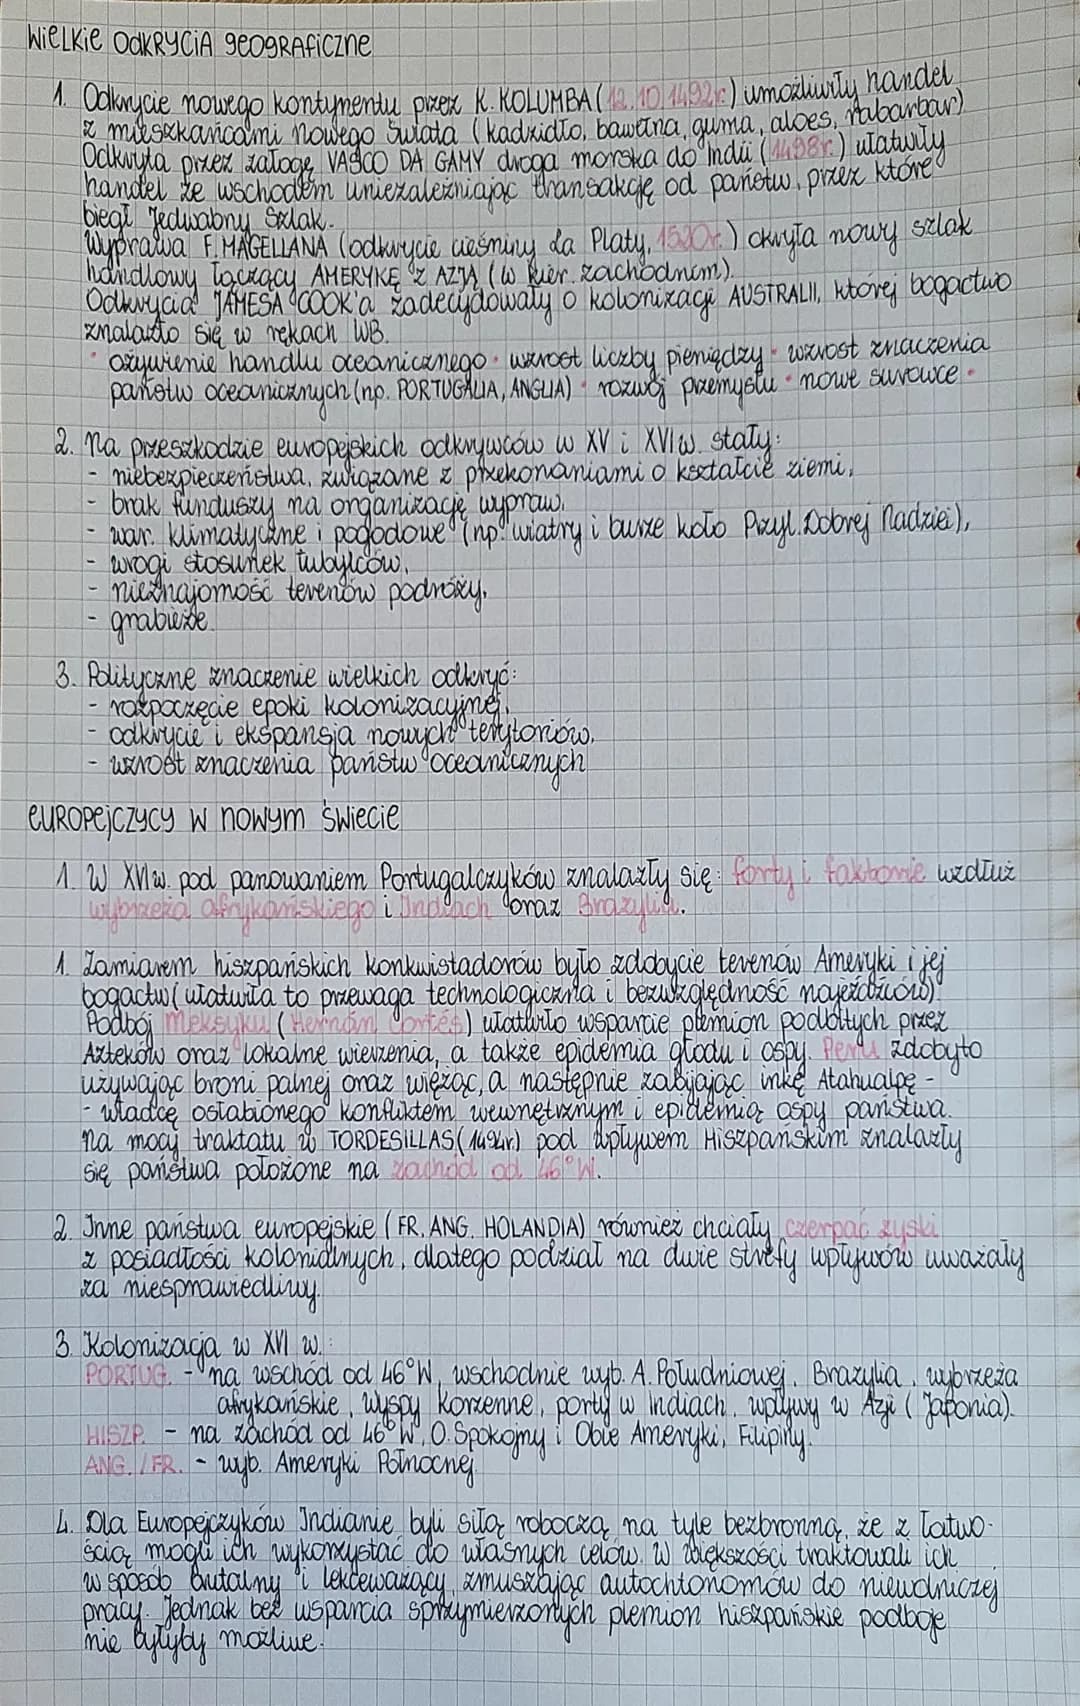 WIELKIE ODKRYCIA GEOGRAFICZNE
1. Odkrycie nowego kontynentu przez K. KOLUMBA (12.10.1492r.) umożliwiły handel
z mieszkańcami nowego świata (kadzidło, bawełna, guma, aloes, rabarbar)
Odkryta przez załogę VASCO DA GAMY droga morska do Indii (1498r.) ułatwiły
handel ze wschodem uniezależniając transakcję od państw, przez które
biegł Jedwabny Szlak.
Wyprawa F. MAGELLANA (odkrycie cieśniny La Platy, 1520r.) okryła nowy szlak
handlowy łączący AMERYKĘ Z AZJĄ (w kier. zachodnim).
Odkrycia JAMESA COOK'a zadecydowały o kolonizacji AUSTRALII, której bogactwo
znalazło się w rękach WB.
• ożywienie handlu oceanicznego • wzrost liczby pieniędzy • wzrost znaczenia
państw oceanicznych (np. PORTUGALIA, ANGLIA) • rozwój przemysłu • nowe surowce •
2. Na przeszkodzie europejskich odkrywców w XV i XVI w. stały:
- niebezpieczeństwa, związane z przekonaniami o kształcie ziemi,
- brak funduszy na organizację wypraw,
- war. klimatyczne i pogodowe (np. wiatry i burze koło Przyl. Dobrej Nadziei),
- wrogi stosunek tubylców,
- nieznajomość terenów podróży,
- grabieże.
3. Polityczne znaczenie wielkich odkryć:
- rozpoczęcie epoki kolonizacyjnej,
- odkrycie i ekspansja nowych terytoriów,
- wzrost znaczenia państw oceanicznych
EUROPEJCZYCY W NOWYM ŚWIECIE
1. W XVI w. pod panowaniem Portugalczyków znalazły się: forty i faktorie wzdłuż
wybrzeża afrykańskiego i Indiach oraz Brazylia.
1. Zamiarem hiszpańskich konkwistadorów było zdobycie terenów Ameryki i jej
bogactw (ułatwiła to przewaga technologiczna i bezwzględność najeźdźców).
Podbój Meksyku (Hernán Cortés) ułatwiło wsparcie plemion podbitych przez
Azteków oraz lokalne wierzenia, a także epidemia głodu i ospy. Peru zdobyto
używając broni palnej oraz więżąc, a następnie zabijając inkę Atahualpę -
- władcę osłabionego konfliktem wewnętrznym i epidemią ospy państwa.
Na mocy traktatu w TORDESILLAS (1494r) pod wpływem Hiszpańskim znalazły
się państwa położone na zachód od 46°W.
2. Inne państwa europejskie (FR, ANG, HOLANDIA) również chciały czerpać zyski
z posiadłości kolonialnych, dlatego podział na dwie strefy wpływów uważały
za niesprawiedliwy.
3. Kolonizacja w XVI w.:
PORTUG. - na wschód od 46°W, wschodnie wyb. A. Południowej, Brazylia, wybrzeża
afrykańskie, wyspy Korzenne, porty w Indiach, wpływy w Azji (Japonia).
HISZP. - na zachód od 46°W, O. Spokojny i Obie Ameryki, Filipiny.
ANG. / FR. - wyb. Ameryki Północnej
4. Dla Europejczyków Indianie byli siłą roboczą na tyle bezbronną, że z łatwo-
ścią mogli ich wykorzystać do własnych celów. W większości traktowali ich
w sposób brutalny i lekceważący, zmuszając autochtonomów do niewolniczej
pracy. Jednak bez wsparcia sprzymierzonych plemion hiszpańskie podboje
nie byłyby możliwe.